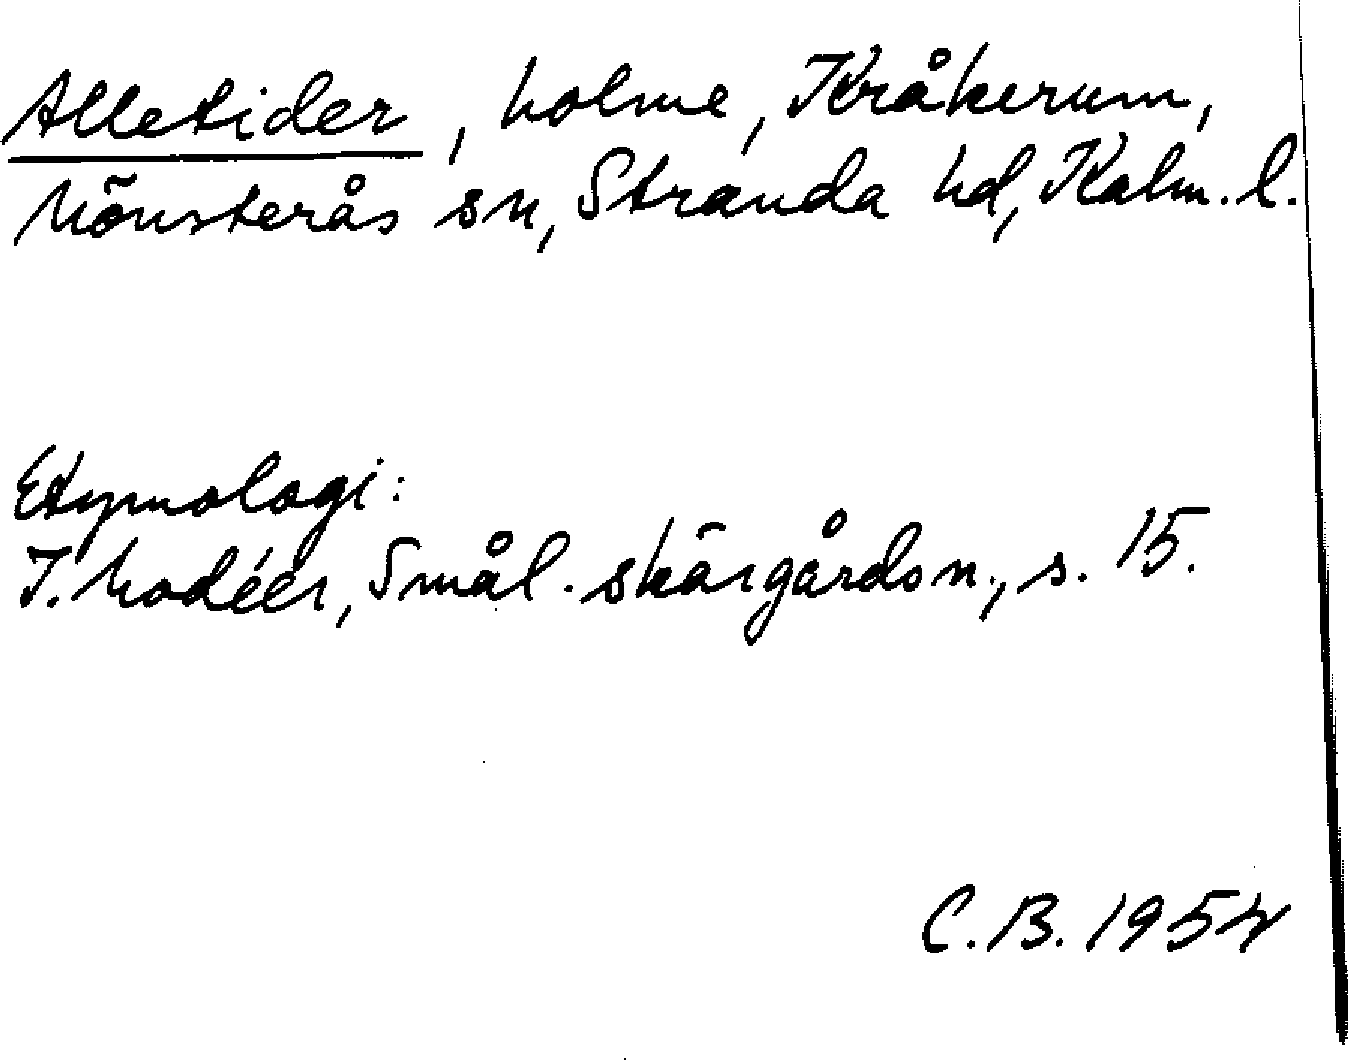 Alletider, holme, Kråkerum,
Mönsterås sn, Stranda hd, Kalm. l.
Etymologi:
I. Modéer, Smål. skärgårdsn., s. 15.
C.B. 1954